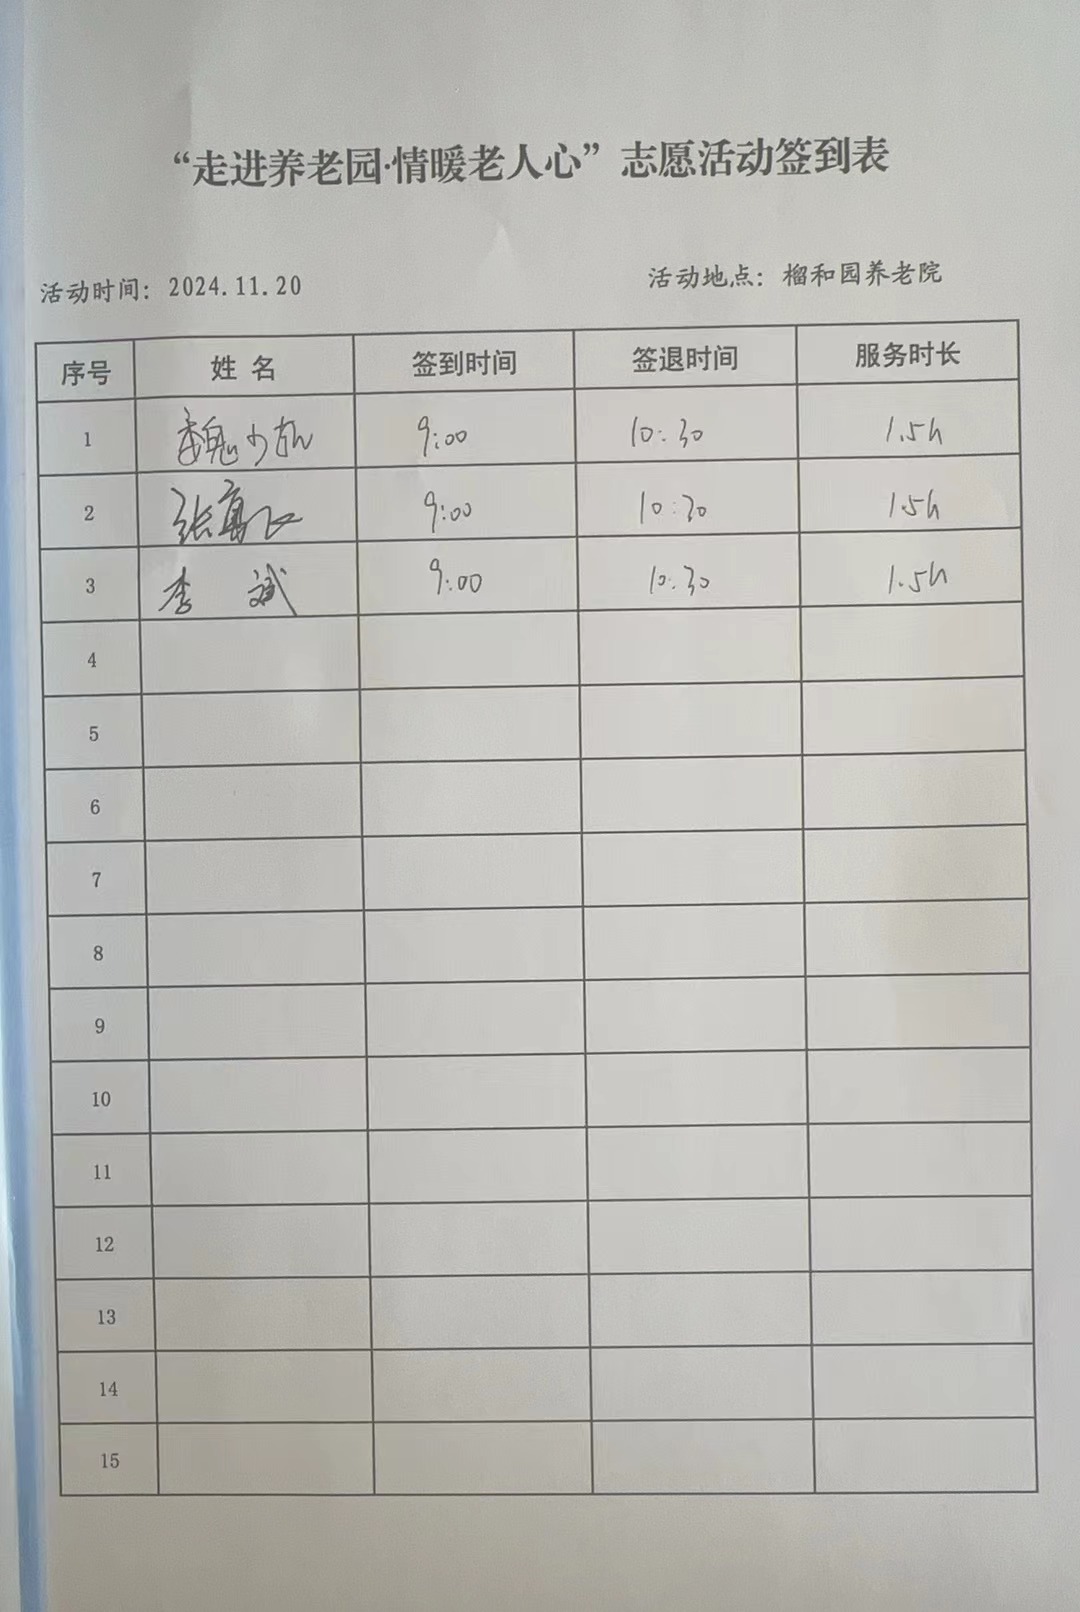 “走进养老园·情暖老人心”志愿活动签到表
活动时间：2024.11.20 活动地点：榴和园养老院
序号 姓名 签到时间 签退时间 服务时长
1 魏少航 9:00 10:30 1.5h
2 张 9:00 10:30 1.5h
3 李斌 9:00 10:30 1.5h
4
5
6
7
8
9
10
11
12
13
14
15